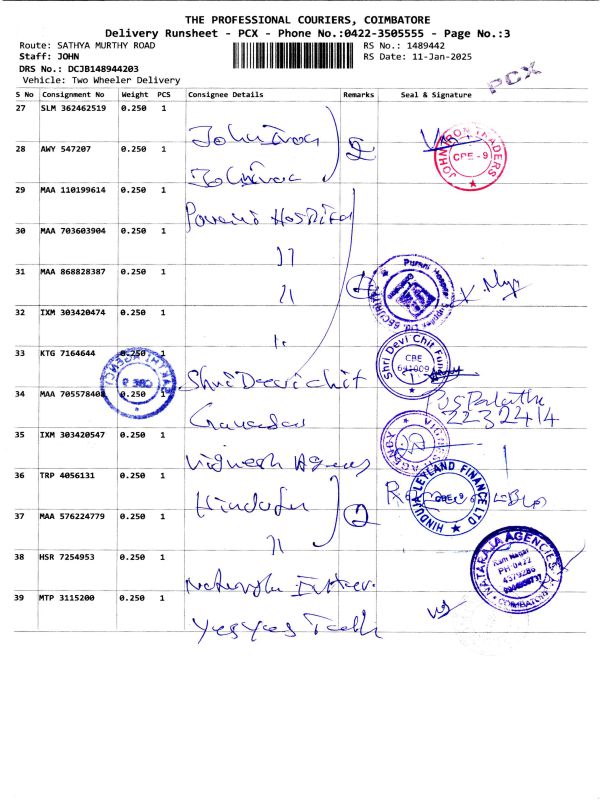 THE PROFESSIONAL COURIERS, COIMBATORE
Delivery Runsheet - PCX - Phone No.:0422-3505555 - Page No.:3
Route: SATHYA MURTHY ROAD RS No.: 1489442
Staff: JOHN RS Date: 11-Jan-2025
DRS No.: DCJB148944203
Vehicle: Two Wheeler Delivery
PCX
S No Consignment No Weight PCS Consignee Details Remarks Seal & Signature
27 SLM 362462519 0.250 1
JOHN IRON TRADERS CBE - 9
28 AWY 547207 0.250 1 2
29 MAA 110199614 0.250 1
Hospital
30 MAA 703603904 0.250 1
11
31 MAA 868828387 0.250 1 4
11
SECURITY
32 IXM 303420474 0.250 1
11
33 KTG 7164644 0.250 1
Shri Devi Chit Fund CBE 641009
Shri Devi chit
34 MAA 705578408 0.250 1
22322414
35 IXM 303420547 0.250 1
VIGNESH AGENCY
Vignesh Agency
36 TRP 4056131 0.250 1
HINDUJA LEYLAND FINANCE LTD CBE - 9
Hinduja
37 MAA 576224779 0.250 1 2
11
38 HSR 7254953 0.250 1
NATARAJA AGENCIES Ram Nagar PH-0422 4379286 COIMBATORE
39 MTP 3115200 0.250 1
Yes Yes Tech